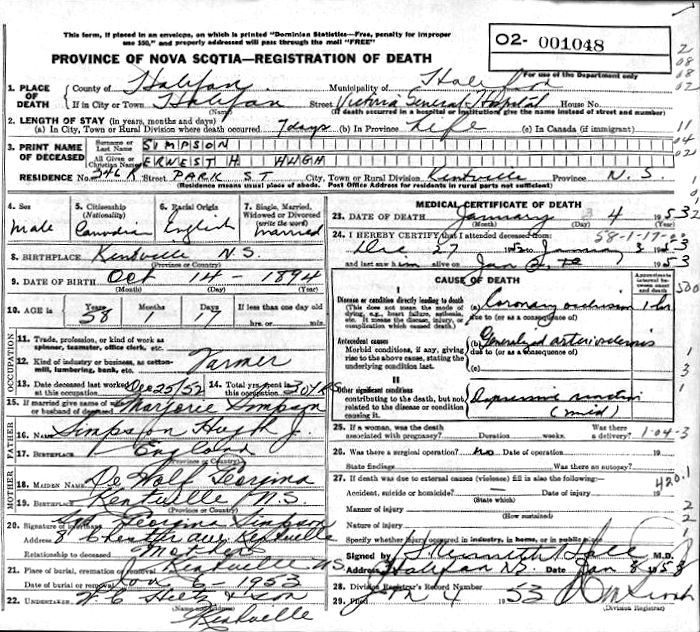 This form, if placed in an envelope, on which is printed "Dominion Statistics—Free, penalty for improper
use $50," and properly addressed will pass through the mail "FREE"
02- 001048
PROVINCE OF NOVA SCOTIA—REGISTRATION OF DEATH
For use of the Department only
1. PLACE OF DEATH County of Halifax Municipality of Halifax
If in City or Town Halifax Street Victoria General Hospital House No.
(Name) (If death occurred in a hospital or institution, give the name instead of street and number)
2. LENGTH OF STAY (in years, months and days)
(a) In City, Town or Rural Division where death occurred 7 days (b) in Province Life (c) in Canada (if immigrant)
3. PRINT NAME OF DECEASED Surname or Last Name SIMPSON
All Given or Christian Names ERNEST H. HUGH
RESIDENCE No. 346 R Street PARK ST City, Town or Rural Division Kentville Province N.S.
(Residence means usual place of abode. Post Office Address for residents in rural parts not sufficient)
4. Sex Male
5. Citizenship (Nationality) Canadian
6. Racial Origin English
7. Single, Married, Widowed or Divorced (write the word) Married
8. BIRTHPLACE Kentville N.S.
(Province or Country)
9. DATE OF BIRTH Oct 14 - 1894
(Month) (Day) (Year)
10. AGE is Years 58 Months 1 Days 17 If less than one day old
hrs. or min.
OCCUPATION
11. Trade, profession, or kind of work as spinner, teamster, office clerk, etc.
12. Kind of industry or business, as cotton-mill, lumbering, bank, etc. Farmer
13. Date deceased last worked at this occupation Dec 25/52 14. Total yrs. spent in this occupation 30 yrs
15. If married give name of wife or husband of deceased Marjorie Simpson
FATHER
16. Name Simpson Hugh J.
17. BIRTHPLACE England
(Province or Country)
MOTHER
18. MAIDEN NAME De Wolf Georgina
19. BIRTHPLACE Kentville N.S.
(Province or Country)
20. Signature of informant Georgina Simpson
Address 8 Chester Ave Kentville
Relationship to deceased Mother
21. Place of burial, cremation or removal Kentville NS
Date of burial or removal Jan 6 - 1953
22. UNDERTAKER W C Hiltz & Son
(Name and Address)
Kentville
MEDICAL CERTIFICATE OF DEATH
23. DATE OF DEATH January 4 1953
(Month) (Day) (Year)
24. I HEREBY CERTIFY that I attended deceased from: 58-1-17-
Dec 27 1952 to January 3 1953
and last saw him alive on Jan 1953
CAUSE OF DEATH
Approximate interval between onset and death
I
Disease or condition directly leading to death (a) Coronary occlusion 1 hr
(This does not mean the mode of dying, e.g., heart failure, asthenia, etc. It means the disease, injury, or complication which caused death.) due to (or as a consequence of)
Antecedent causes (b) Generalized arteriosclerosis
Morbid conditions, if any, giving rise to the above cause, stating the underlying condition last. due to (or as a consequence of)
(c)
II
Other significant conditions contributing to the death, but not related to the disease or condition causing it. Depressive reaction (mild)
25. If a woman, was the death associated with pregnancy? Duration weeks. Was there a delivery? 1-04-3
26. Was there a surgical operation? no Date of operation
State findings Was there an autopsy?
27. If death was due to external causes (violence) fill in also the following: 420.1
Accident, suicide or homicide? Date of injury
(State which)
Manner of injury
(How sustained)
Nature of injury
Specify whether injury occurred in industry, in home, or in public place
Signed by J. Kenneth Hall M.D.
Address Halifax NS Date Jan 8 1953
28. Division Registrar's Record Number
29. Filed Jan 4 1953
(Division Registrar)